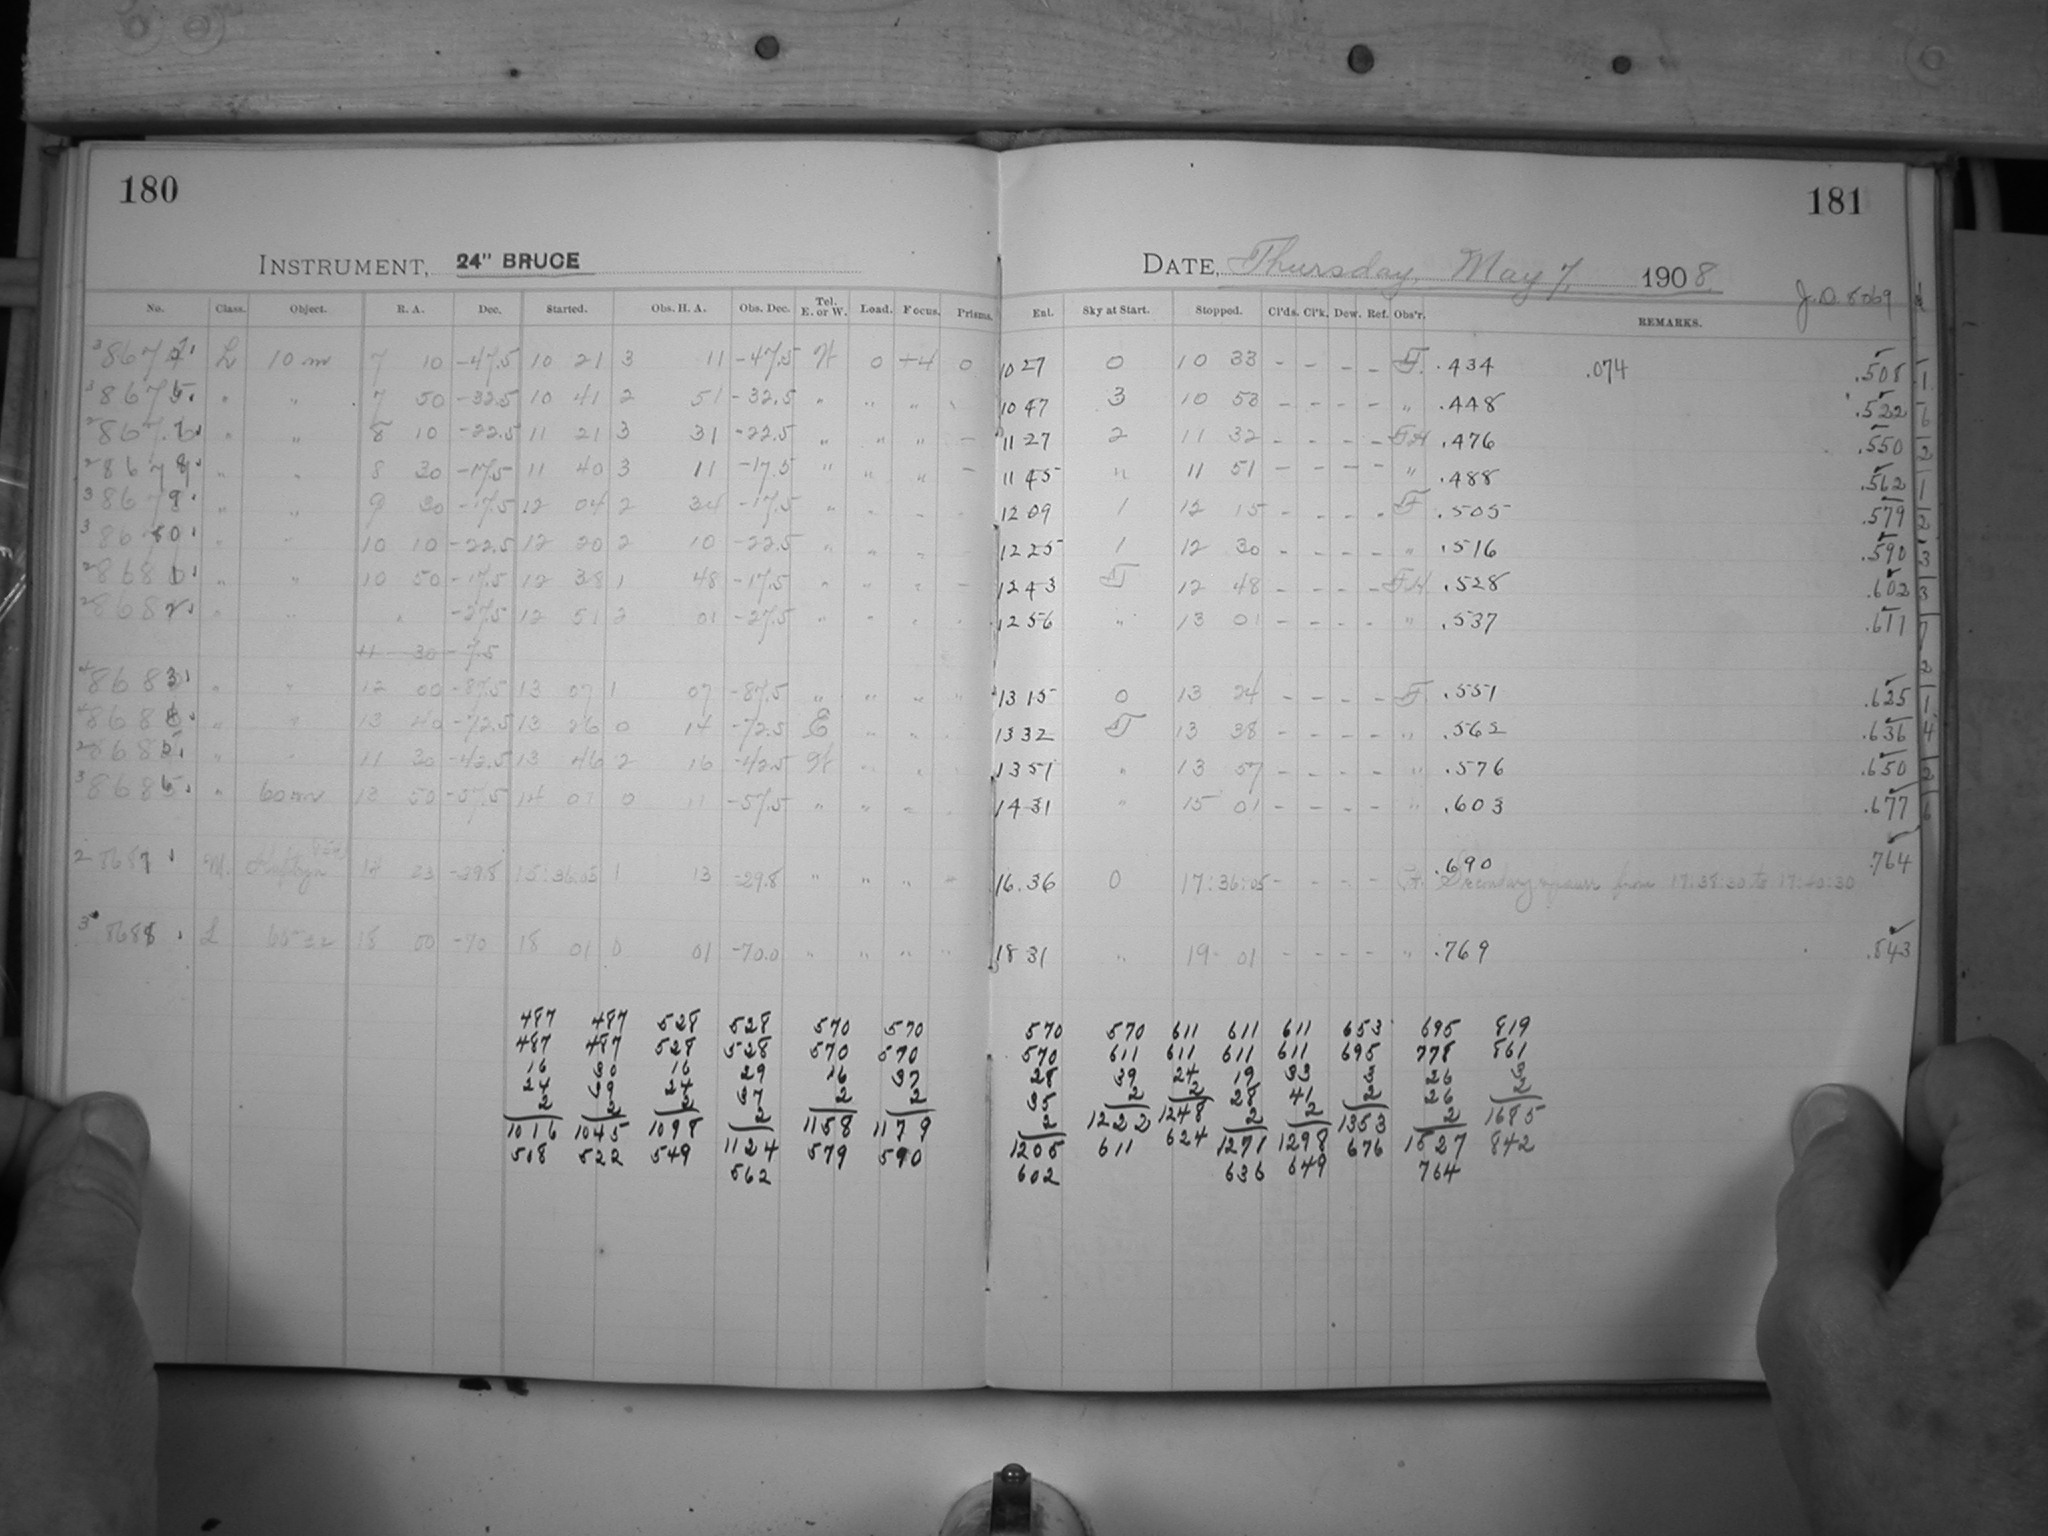 180
181
INSTRUMENT, 24" BRUCE
DATE, Thursday, May 7, 1908.
J.D. 8069
No. Class. Object. R. A. Dec. Started. Obs. H. A. Obs. Dec. Tel. E. or W. Load. Focus. Prisms. Ent. Sky at Start. Stopped. Cl'ds. Cl'k. Dew. Ref. Obs'r. REMARKS.
L 10 m 7 10 -47.5 10 21 3 11 -47.5 W 0 +4 0 10 27 0 10 33 - - - - .434 .074 .508 1
" " 7 50 -32.5 10 41 2 51 -32.5 " " " 10 47 3 10 53 - - - - " .448 .522 6
" " 8 10 -22.5 11 21 3 31 -22.5 " " " - 11 27 2 11 32 - - - - .476 .550 2
" " 8 30 -17.5 11 40 3 11 -17.5 " " " - 11 45 " 11 51 - - - - " .488 .562 1
" " 9 30 -17.5 12 04 2 34 -17.5 " 12 09 1 12 15 - - - - .505 .579 2
10 10 -22.5 12 20 2 10 -22.5 " 12 25 1 12 30 - - - - " .516 .590 3
" " 10 50 -17.5 12 38 1 48 -17.5 " 12 43 12 48 - - - - .528 .602 3
" " " -27.5 12 51 2 01 -27.5 " 12 56 " 13 01 - - - - " .537 .611
11 30 -7.5 2
" " 12 00 -87.5 13 07 1 07 -87.5 " " " " 13 15 0 13 24 - - - - .551 .625 1
" " 13 40 -72.5 13 26 0 14 -72.5 E " 13 32 13 38 - - - - " .562 .636 4
" " 11 30 -42.5 13 46 2 16 -42.5 W 13 51 " 13 57 - - - - " .576 .650 2
" 60 m 13 50 -57.5 14 01 0 11 -57.5 " " 14 31 " 15 01 - - - - " .603 .677 6
M. 14 23 -29.8 15:36:05 1 13 -29.8 " " " 16.36 0 17:36:05 - - - - .690 Secondary exposure from 17:38:30 to 17:40:30 .764
L 18 00 -70 18 01 0 01 -70.0 " " " " 18 31 " 19 01 - - - - " .769 .843
487 487 528 528 570 570 570 570 611 611 611 653 695 819
487 487 528 528 570 570 570 611 611 611 611 695 778 861
16 30 16 29 16 37 28 39 24 19 33 3 26 3
24 39 24 37 2 2 35 2 2 28 41 2 26 2
2 2 2 2 2 2 2 2
1016 1045 1098 1124 1158 1179 1205 1222 1248 1271 1298 1353 1527 1685
508 522 549 562 579 590 602 611 624 636 649 676 764 842